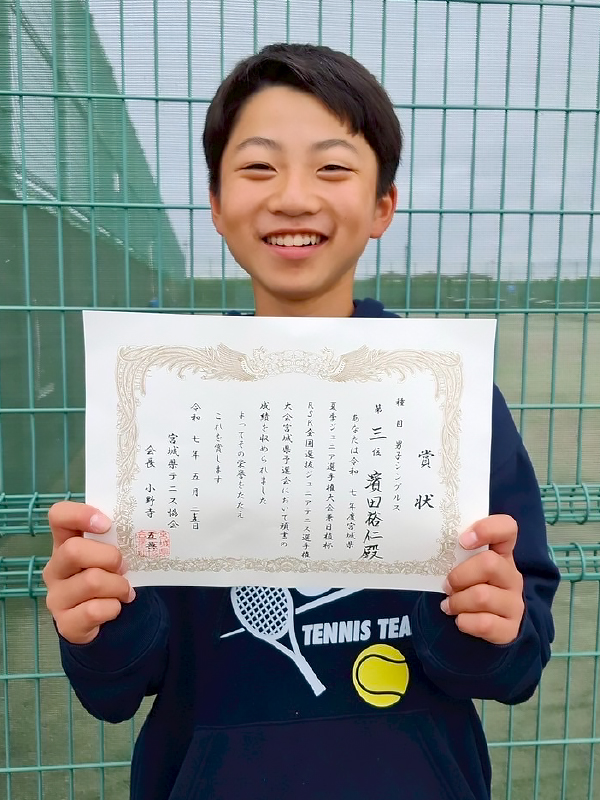 賞状
種目 男子シングルス
第三位 濱田裕仁殿
あなたは令和 七 年度宮城県
夏季ジュニア選手権大会兼日植杯
RSK全国選抜ジュニアテニス選手権
大会宮城県予選会において頭書の
成績を収められました
よってその栄誉をたたえ
これを賞します
令和 七 年 五 月 二五日
宮城県テニス協会
会長 小野寺
TENNIS TEA